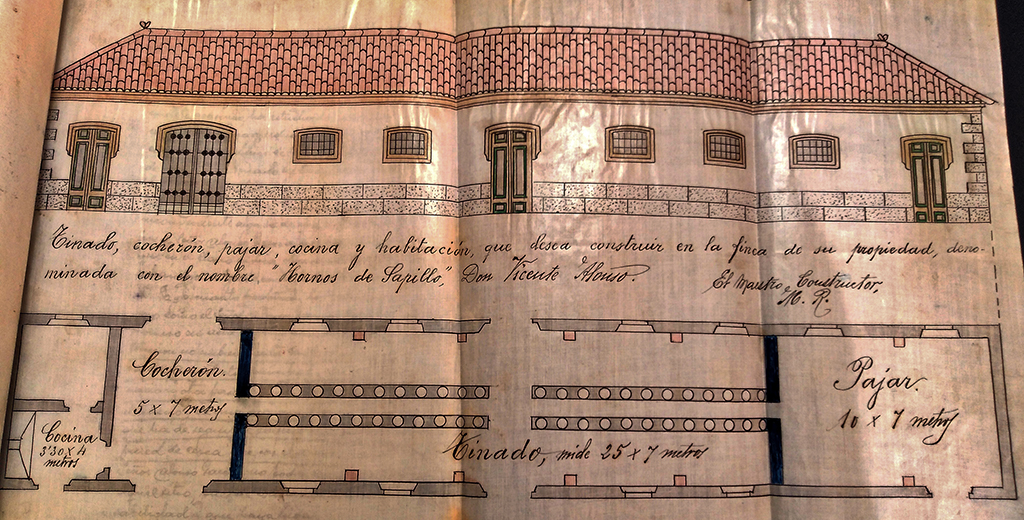 Tinado, cocherón, pajar, cocina y habitación, que desea construir en la finca de su propiedad, deno-
minada con el nombre "Hornos de Sapillo", Don Vicente Alonso.
El Maestro Constructor,
M. R.
Cocherón.
5 x 7 metros
Cocina
3'30 x 4
metros
Tinado, mide 25 x 7 metros
Pajar.
10 x 7 metros